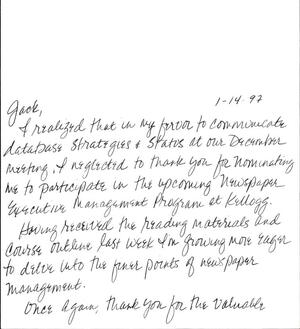 1-14-92
Jack,
I realized that in my fervor to communicate
database strategies & status at our December
meeting, I neglected to thank you for nominating
me to participate in the upcoming Newspaper
Executive Management Program at Kellogg.
Having received the reading materials and
course outline last week I'm growing more eager
to delve into the finer points of newspaper
management.
Once again, thank you for the valuable